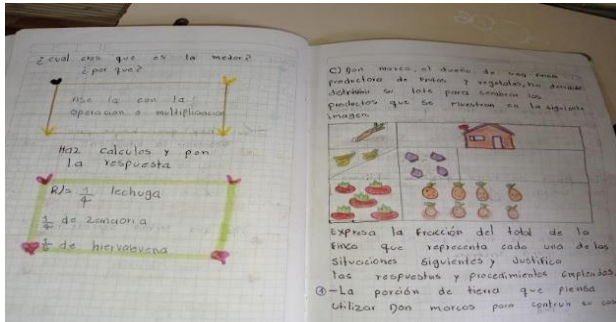 ¿cual cres que es la mejor?
¿por que?
Haz la con la
operacion o multiplicacion
Haz calculos y pon
la respuesta
R/= 1/4 lechuga
1/4 de zanaoria
de hiervabuena
C) Don marco, el dueño de una
productora de frutas y vegetales, ha decidido
su lote para sembrar los
productos que se muestran en la siguiente
imagen.
Expresa la fracción del total de la
finca que representa cada una de las
situaciones siguientes y Justifica
las respuestas y procedimientos empleados
-La porción de tierra que piensa
utilizar Don marcos para contruir su casa